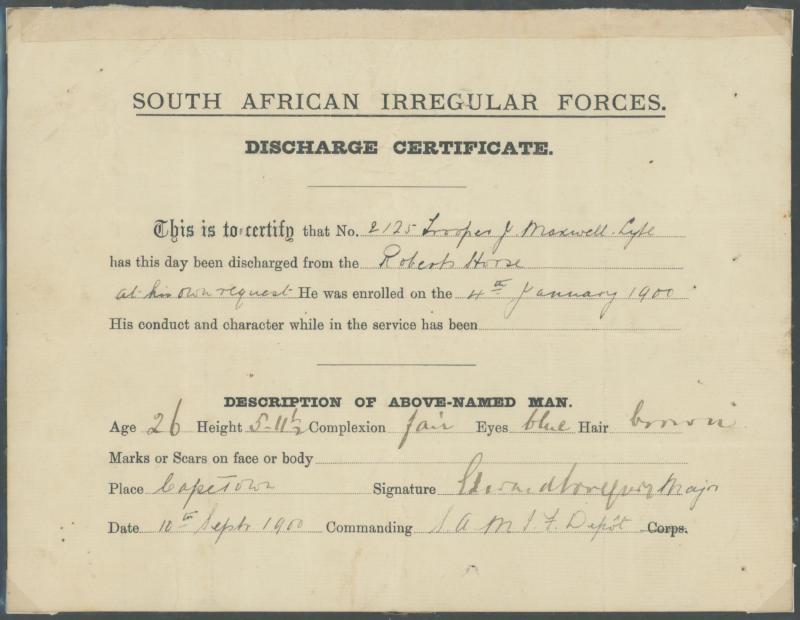 SOUTH AFRICAN IRREGULAR FORCES.
DISCHARGE CERTIFICATE.
This is to certify that No. 2125 Trooper J. Maxwell-Lyte
has this day been discharged from the Roberts Horse
at his own request He was enrolled on the 4th January 1900
His conduct and character while in the service has been
DESCRIPTION OF ABOVE-NAMED MAN.
Age 26 Height 5-11½ Complexion fair Eyes blue Hair brown
Marks or Scars on face or body
Place Capetown Signature Major
Date 10th Septr. 1900 Commanding S.A.M.I.F. Depôt Corps.